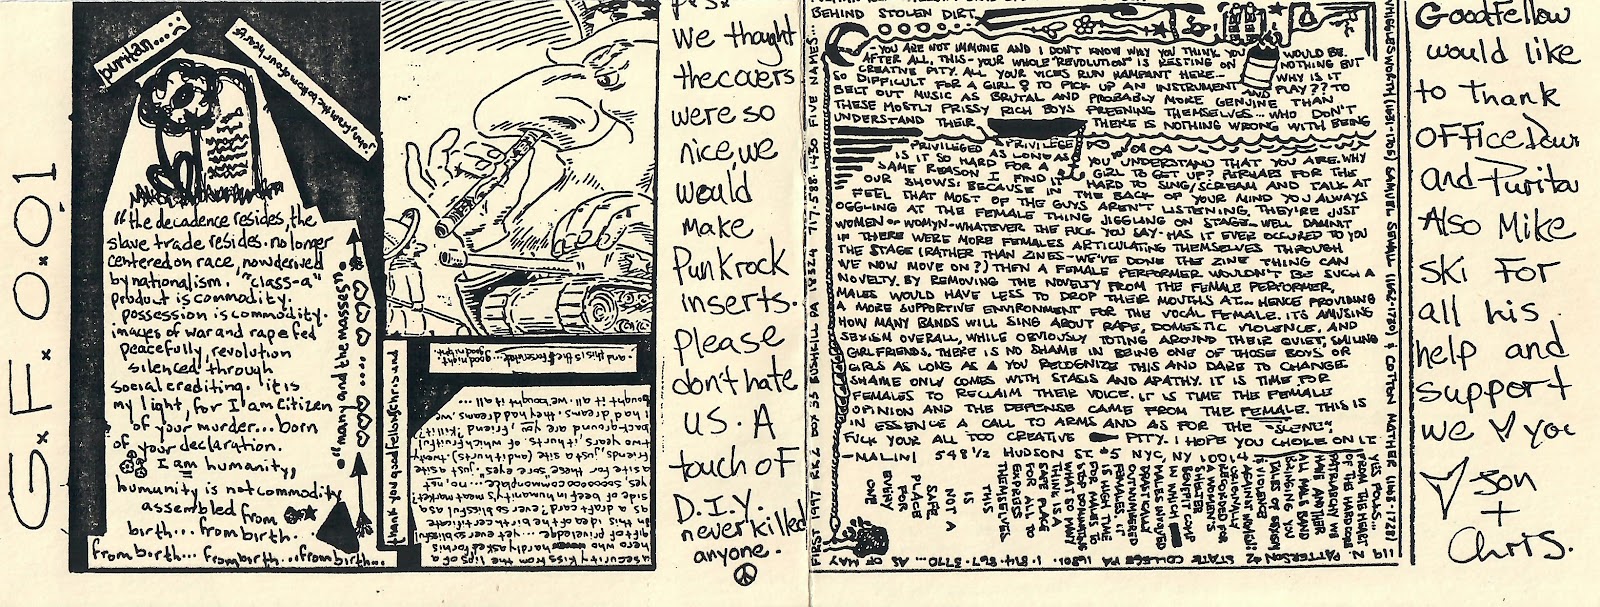 G.F.O.O1
puritan....
john/from the bottom of our hearts
"the decadence resides, the
slave trade resides. no longer
centered on race, now derived
by nationalism. "class-a"
product is commodity.
possession is commodity.
images of war and rape fed
peacefully, revolution
silenced through
social crediting. it is
my light, for I am Citizen
of your murder... born
of your declaration.
I am humanity,
humanity is not commodity
assembled from
birth... from birth.
from birth... from birth...from birth...
thank you goodfellos chris und
..and this is the fitness ride... goodnight.
goodnight.
security kiss from the lips of a
hero who hardly asked for his
gift of priviledge ...yet ever so blissful
in this idea of the birth certificate
as a draft card? ever so blissful as a
side of beef in humanity's meat market?
yes, soooooo commonplace... no, not
a site for these sore eyes, just a site
friends, just a site (and it hurts). twenty
two years, it hurts. of which fruitful
background are yes, friend, (kill it)
i had dreams, they had dreams, we
bought it all. we bought it all...
p.s.
We thought
the covers
were so
nice, we
would
make
Punk rock
inserts.
please
don't hate
us. A
touch of
D.I.Y.
never killed
anyone.
FIRST 1997 RR2 BOX 35 BUSHKILL PA 18324 717.588.1430 FIVE NAMES...
BEHIND STOLEN DIRT
-YOU ARE NOT IMMUNE AND I DON'T KNOW WHY YOU THINK YOU WOULD BE.
AFTER ALL, THIS YOUR WHOLE "REVOLUTION" IS RESTING ON NOTHING BUT
CREATIVE PITY. ALL YOUR VICES RUN RAMPANT HERE- WHY IS IT
SO DIFFICULT FOR A GIRL ♀ TO PICK UP AN INSTRUMENT AND PLAY?? TO
BELT OUT MUSIC AS BRUTAL AND PROBABLY MORE GENUINE THAN
THESE MOSTLY PRISSY RICH BOYS PREENING THEMSELVES... WHO DON'T
UNDERSTAND THEIR THERE IS NOTHING WRONG WITH BEING
PRIVILEGE
PRIVILEGED AS LONG AS YOU UNDERSTAND THAT YOU ARE. WHY
IS IT SO HARD FOR A GIRL TO GET UP? PERHAPS FOR THE
SAME REASON I FIND IT HARD TO SING/SCREAM AND TALK AT
OUR SHOWS: BECAUSE IN THE BACK OF YOUR MIND YOU ALWAYS
FEEL THAT MOST OF THE GUYS AREN'T LISTENING, THEY'RE JUST
OGGLING AT THE FEMALE THING JIGGLING ON STAGE- WELL DAMNIT
WOMEN OR WOMYN-WHATEVER THE FUCK YOU SAY- HAS IT EVER OCCURED TO YOU
IF THERE WERE MORE FEMALES ARTICULATING THEMSELVES THROUGH
THE STAGE (RATHER THAN ZINES-WE'VE DONE THE ZINE THING CAN
WE NOW MOVE ON?) THEN A FEMALE PERFORMER WOULDN'T BE SUCH A
NOVELTY. BY REMOVING THE NOVELTY FROM THE FEMALE PERFORMER,
MALES WOULD HAVE LESS TO DROP THEIR MOUTHS AT... HENCE PROVIDING
A MORE SUPPORTIVE ENVIRONMENT FOR THE VOCAL FEMALE. ITS AMUSING
HOW MANY BANDS WILL SING ABOUT RAPE, DOMESTIC VIOLENCE, AND
SEXISM OVERALL, WHILE OBVIOUSLY TOTING AROUND THEIR QUIET, SMILING
GIRLFRIENDS. THERE IS NO SHAME IN BEING ONE OF THOSE BOYS OR
GIRLS AS LONG AS A YOU RECOGNIZE THIS AND DARE TO CHANGE.
SHAME ONLY COMES WITH STASIS AND APATHY. IT IS TIME FOR
FEMALES TO RECLAIM THEIR VOICE. IT IS TIME THE FEMALE
OPINION AND THE DEFENSE CAME FROM THE FEMALE. THIS IS
IN ESSENCE A CALL TO ARMS AND AS FOR THE "SCENE";
FUCK YOUR ALL TOO CREATIVE PITY. I HOPE YOU CHOKE ON IT
-MALINI 548 1/2 HUDSON ST. #5 NYC, NY 10014
YES FOLKS...
FROM THE HEART
OF THE HARDCORE
PATRIARCHY WE
HAVE ANOTHER
ALL MALE BAND
BRINGING YOU
TALES OF
VIOLENCE
AGAINST WOMEN.
ORIGINALLY
RECORDED FOR
A WOMEN'S
SHELTER
BENEFIT COMP
IN WHICH
MALES INVOLVED
DRASTICALLY
OUTNUMBERED
FEMALES. IT
IS HIGH TIME
FOR MALES TO
STOP DOMINATING
WHAT SO MANY
THINK IS A
SAFE PLACE
FOR ALL TO
EXPRESS
THEMSELVES.
THIS
IS
NOT A
SAFE
PLACE
FOR
EVERY
ONE
1119 N. PATTERSON #2 STATE COLLEGE PA 16801. 1.814.867.3770... AS OF MAY
WIGGLESWORTH (1631-1705) SAMUEL SEWALL (1652-1730) & COTTON MATHER (1663-1728)
Goodfellow
would like
to thank
Office
and Purita
Also Mike
Ski For
all his
help and
support
we ♡ you
♡ Jon
+
Chris.